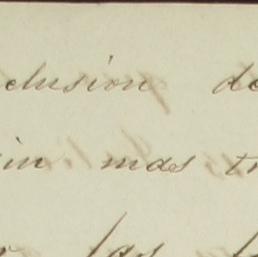 clusion de
in mas tr
las